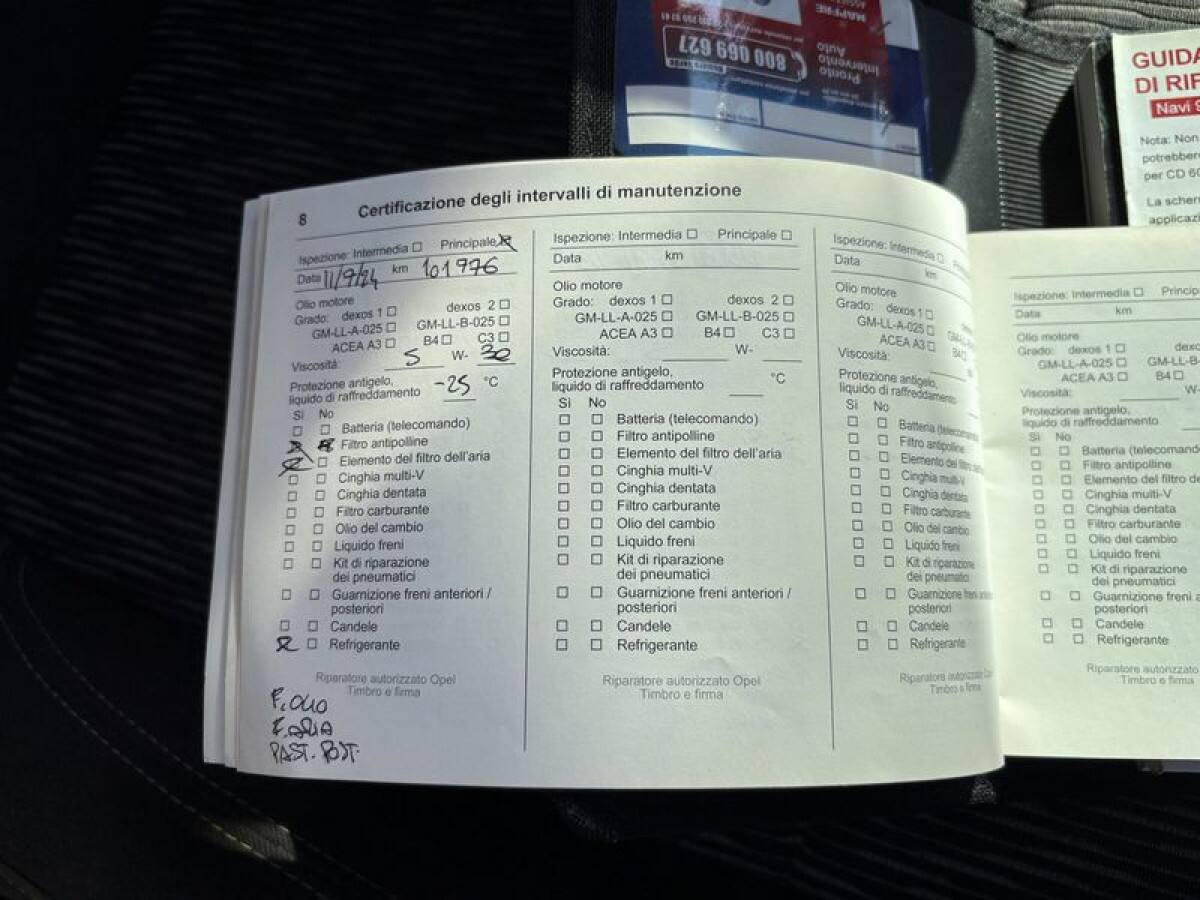 MAPFRE
800 069 627
Pronto
Intervento
Auto
GUIDA
DI RIF
Navi
Nota: Non
potrebber
per CD 60
La scher
applicazi
8 Certificazione degli intervalli di manutenzione
Ispezione: Intermedia ☐ Principale ☒
Data 11/9/24 km 101776
Olio motore
Grado: dexos 1 ☐ dexos 2 ☐
GM-LL-A-025 ☐ GM-LL-B-025 ☐
ACEA A3 ☐ B4 ☐ C3 ☐
Viscosità: 5 W- 30
Protezione antigelo,
liquido di raffreddamento -25 °C
Sì No
☐ ☐ Batteria (telecomando)
☒ ☒ Filtro antipolline
☒ ☐ Elemento del filtro dell'aria
☐ ☐ Cinghia multi-V
☐ ☐ Cinghia dentata
☐ ☐ Filtro carburante
☐ ☐ Olio del cambio
☐ ☐ Liquido freni
☐ ☐ Kit di riparazione
dei pneumatici
☐ ☐ Guarnizione freni anteriori /
posteriori
☐ ☐ Candele
☒ ☐ Refrigerante
Riparatore autorizzato Opel
Timbro e firma
F. OLIO
F. ARIA
PAST. POST.
Ispezione: Intermedia ☐ Principale ☐
Data km
Olio motore
Grado: dexos 1 ☐ dexos 2 ☐
GM-LL-A-025 ☐ GM-LL-B-025 ☐
ACEA A3 ☐ B4 ☐ C3 ☐
Viscosità: W-
Protezione antigelo,
liquido di raffreddamento °C
Sì No
☐ ☐ Batteria (telecomando)
☐ ☐ Filtro antipolline
☐ ☐ Elemento del filtro dell'aria
☐ ☐ Cinghia multi-V
☐ ☐ Cinghia dentata
☐ ☐ Filtro carburante
☐ ☐ Olio del cambio
☐ ☐ Liquido freni
☐ ☐ Kit di riparazione
dei pneumatici
☐ ☐ Guarnizione freni anteriori /
posteriori
☐ ☐ Candele
☐ ☐ Refrigerante
Riparatore autorizzato Opel
Timbro e firma
Ispezione: Intermedia ☐
Data km
Olio motore
Grado: dexos 1 ☐
GM-LL-A-025 ☐
ACEA A3 ☐ B4
Viscosità:
Protezione antigelo,
liquido di raffreddamento
Sì No
☐ ☐ Batteria (telecomando
☐ ☐ Filtro antipolline
☐ ☐ Elemento del filtro
☐ ☐ Cinghia multi-V
☐ ☐ Cinghia dentata
☐ ☐ Filtro carburante
☐ ☐ Olio del cambio
☐ ☐ Liquido freni
☐ ☐ Kit di riparazione
dei pneumatici
☐ ☐ Guarnizione freni
posteriori
☐ ☐ Candele
☐ ☐ Refrigerante
Riparatore autorizzato
Timbro e firma
Ispezione: Intermedia ☐ Princip
Data km
Olio motore
Grado: dexos 1 ☐ dexo
GM-LL-A-025 ☐ GM-LL-B
ACEA A3 ☐ B4 ☐
Viscosità: W-
Protezione antigelo,
liquido di raffreddamento
Sì No
☐ ☐ Batteria (telecomand
☐ ☐ Filtro antipolline
☐ ☐ Elemento del filtro de
☐ ☐ Cinghia multi-V
☐ ☐ Cinghia dentata
☐ ☐ Filtro carburante
☐ ☐ Olio del cambio
☐ ☐ Liquido freni
☐ ☐ Kit di riparazione
dei pneumatici
☐ ☐ Guarnizione freni a
posteriori
☐ ☐ Candele
☐ ☐ Refrigerante
Riparatore autorizzato
Timbro e firma